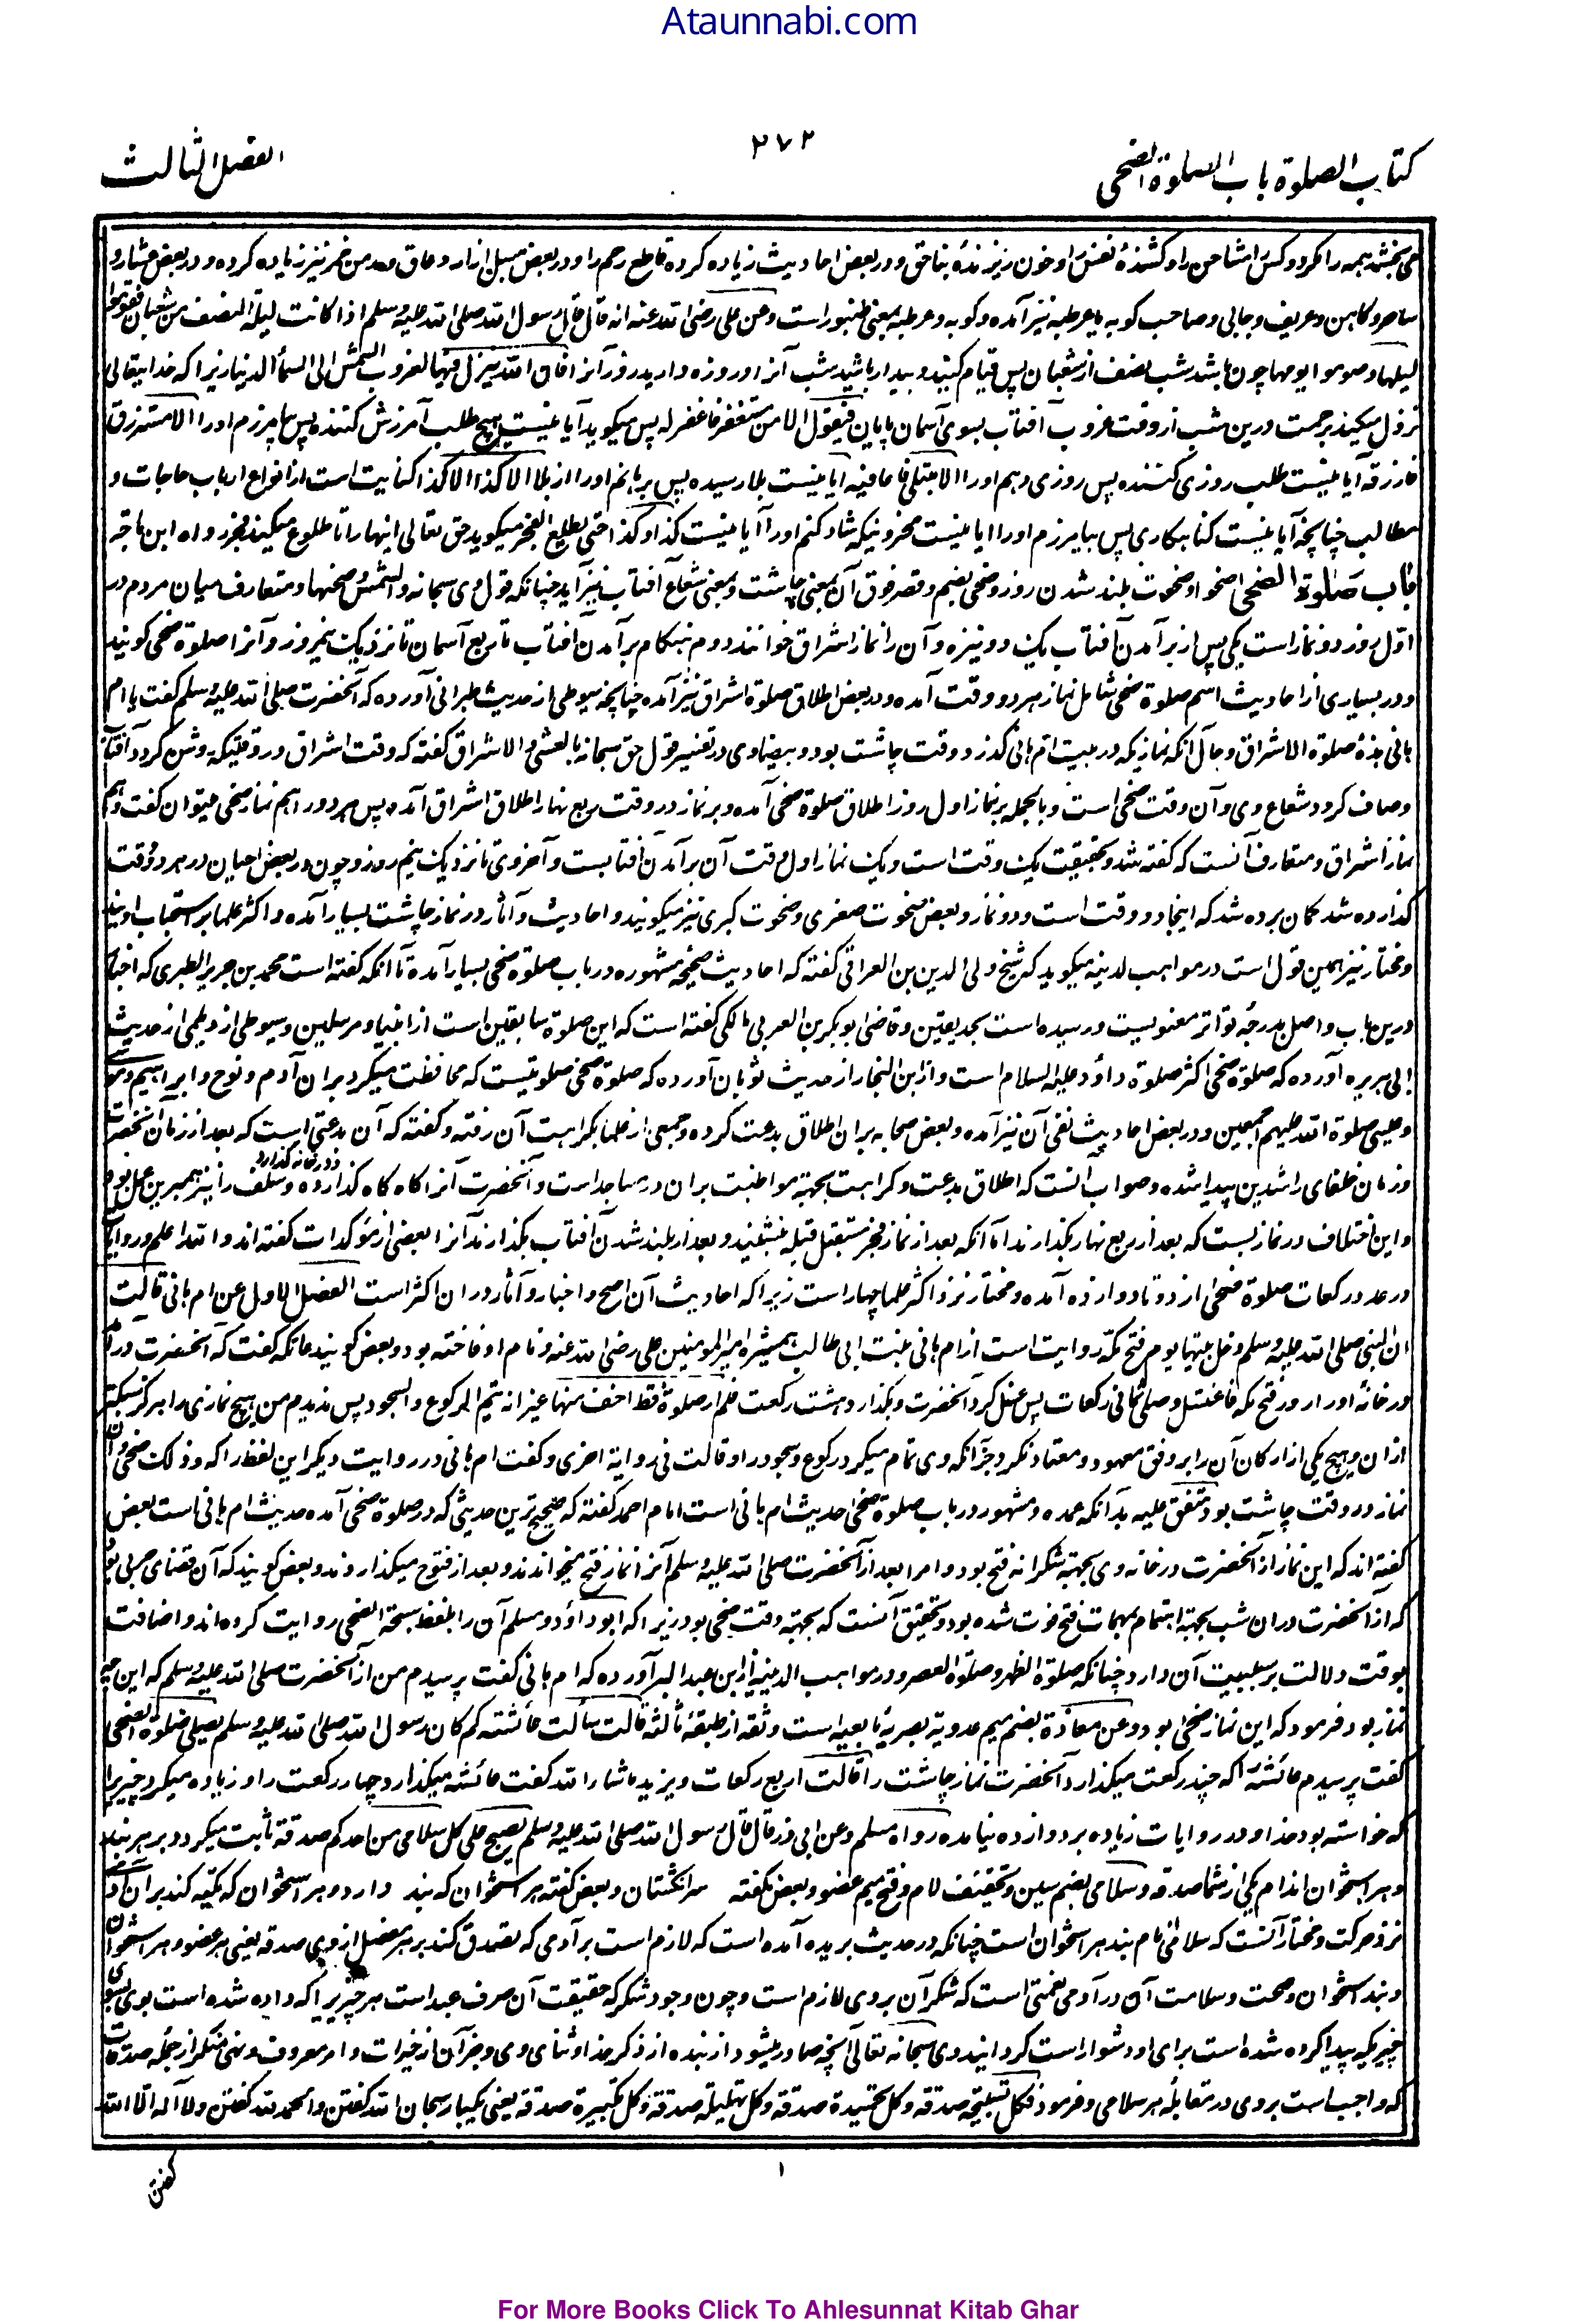 Ataunnabi.com
كتاب الصلوة باب الصلوة الضحى
٢٧٢
الفصل الثالث
می بخشد همه را مگر دو کس را مشاحن را و کشندهٔ نفس را و خون ریزندهٔ بناحق و در بعض احادیث زیاده کرده قاطع رحم را و در بعض مسبل ازار و عاق و مدمن خمر نیز زیاده کرده و در بعض عشار و
ساحر و کاهن و عریف و جابی و صاحب کوبه یا عرطبه نیز آمده و کوبه و عرطبه بمعنی طنبور است وعن علی رضی الله عنه انه قال قال رسول الله صلی الله علیه وسلم اذا کانت لیلة النصف من شعبان فقوموا
لیلها وصوموا یومها چون باشد شب نصف از شعبان پس قیام کنید و بیدار باشید شب آنرا و روزه دارید روز آنرا فان الله ینزل فیها لغروب الشمس الی السمآء الدنیا زیرا که خدایتعالی
نزول میکند برحمت درین شب از وقت غروب آفتاب بسوی آسمان پایان فیقول الا من مستغفر فاغفر له پس میگوید آیا نیست هیچ طلب آمرزش کننده پس بیامرزم او را الا مسترزق
فارزقه آیا نیست طلب روزی کننده پس روزی دهم او را الا مبتلی فاعافیه آیا نیست بلا رسیده پس برهانم او را از بلا الا کذا الا کذا کنایت است از انواع ارباب حاجات و
مطالب چنانچه آیا نیست گناهکاری پس بیامرزم او را آیا نیست محزونیکه شاد کنم او را آیا نیست کذا و کذا حتی یطلع الفجر میگوید حق تعالی اینها را تا طلوع میکند فجر رواه ابن ماجه
باب صلوة الضحی ضحو و ضحوت بلند شدن روز و ضحی بضم و قصر فوق آن بمعنی چاشت و بمعنی شعاع آفتاب نیز آید چنانکه قول وی سبحانه والشمس وضحیها و متعارف میان مردم در
اول روز دو نماز است یکی پس از برآمدن آفتاب یک دو نیزه و آن را نماز اشراق خوانند دوم هنگام برآمدن آفتاب تا ربع آسمان تا نزدیک نیمروز و آنرا صلوة ضحی گویند
و در بسیاری از احادیث اسم صلوة ضحی شامل نماز هر دو وقت آمده و در بعض اطلاق صلوة اشراق نیز آمده چنانچه سیوطی از حدیث طبرانی آورده که آنحضرت صلی الله علیه وسلم گفت یا ام
هانی هذه صلوة الاشراق و حال آنکه نمازیکه در بیت ام هانی گذارد وقت چاشت بود و بیضاوی در تفسیر قول حق سبحانه بالعشی والاشراق گفته که وقت اشراق در وقتیکه روشن گردد آفتاب
و صاف گردد شعاع وی و آن وقت ضحی است و بالجمله بر نماز اول روز اطلاق صلوة ضحی آمده و بر نماز در وقت ربع نهار اطلاق اشراق آمده پس هر دو را هم نماز ضحی میتوان گفت و هم
نماز اشراق و متعارف آنست که گفته شد و بحقیقت یک وقت است و یک نماز اول وقت آن برآمدن آفتابست و آخر وی تا نزدیک نیم روز و چون در بعض احیان در هر دو وقت
گذارده شد گمان برده شد که اینجا دو وقت است و دو نماز و بعض ضحوت صغری و ضحوت کبری نیز میگویند و احادیث و آثار در نماز چاشت بسیار آمده و اکثر علما بر استحباب اویند
و مختار نیز همین قول است در مواهب لدنیه میگوید که شیخ ولی الدین بن العراقی گفته که احادیث صحیحه مشهوره در باب صلوة ضحی بسیار آمده تا آنکه گفته است محمد بن جریر الطبری که اخبار
درین باب واصل بدرجهٔ تواتر معنویست و رسیده است بحد یقین و قاضی ابوبکر بن العربی مالکی گفته است که این صلوة سابقین است از انبیا و مرسلین و سیوطی از دیلمی از حدیث
ابی هریره آورده که صلوة ضحی اکثر صلوة داؤد علیه السلام است و از ابن النجار از حدیث ثوبان آورده که صلوة ضحی صلوتیست که محافظت میکرد بران آدم و نوح و ابراهیم و موسی
و عیسی صلوة الله علیهم اجمعین و در بعض احادیث نفی آن نیز آمده و بعض صحابه بران اطلاق بدعت کرده و جمعی از علما بکراهت آن رفته و گفته که آن بدعتی است که بعد از زمان آنحضرت
و زمان خلفای راشدین پیدا شده و صواب آنست که اطلاق بدعت و کراهت بجهت مواظبت بران در مساجد است و آنحضرت آنرا گاه گاه گذارده و در خانه گذارده و سلف را نیز همبرین عمل بود
و این اختلاف در نمازیست که بعد از ربع نهار بگذارند اما آنکه بعد از نماز فجر مستقبل قبله بنشینند و بعد از بلند شدن آفتاب بگذارند آنرا بعضی از مؤکدات گفته اند والله اعلم و روایات
در عدد رکعات صلوة ضحی از دو تا دوازده آمده و مختار نزد اکثر علما چهار است زیرا که احادیث آن اصح و اخبار و آثار دران اکثر است الفصل الاول عن ام هانی قالت
ان النبی صلی الله علیه وسلم دخل بیتها یوم فتح مکّه روایت است از ام هانی بنت ابی طالب همشیرهٔ امیرالمومنین علی رضی الله عنه و نام او فاخته بود و بعض گویند عاتکه گفت که آنحضرت درآمد
در خانهٔ او روز فتح مکه فاغتسل وصلی ثمانی رکعات پس غسل کرد آنحضرت و بگذارد هشت رکعت فلم ار صلوة قط اخف منها غیر انه یتم الرکوع والسجود پس ندیدم من هیچ نمازی را هرگز سبکتر
ازان و هیچ یکی از ارکان آن را بر وفق معهود و معتاد نکرد جز آنکه وی تمام میکرد رکوع و سجود را وقالت فی روایة اخری و گفت ام هانی در روایت دیگر این لفظ را که وذلک ضحی و آن
نماز در وقت چاشت بود متفق علیه بدانکه عمده و مشهور در باب صلوة ضحی حدیث ام هانی است امام احمد گفته که صحیح ترین حدیثی که در صلوة ضحی آمده حدیث ام هانی است بعض
گفته اند که این نماز از آنحضرت در خانه وی بجهت شکرانه فتح بود و امرا بعد از آنحضرت صلی الله علیه وسلم آنرا نماز فتح میخواندند و بعد از فتوح میگذاردند و بعض گویند که آن قضای حزبی بود
که از آنحضرت دران شب بجهت اهتمام بمهمات فتح فوت شده بود و تحقیق آنست که بجهت وقت ضحی بود زیرا که ابوداؤد و مسلم آن را بلفظ سبحة الضحی روایت کرده اند و اضافت
بوقت دلالت بر سببیت آن دارد چنانکه صلوة الظهر و صلوة العصر و در مواهب الدنیه از ابن عبدالبر آورده که ام هانی گفت پرسیدم من از آنحضرت صلی الله علیه وسلم که این چه
نماز بود فرمود که این نماز ضحی بود وعن معاذة بضم میم عدویه بصریهٔ تابعیه است و ثقه از طبقهٔ ثالثه قالت سألت عائشة کم کان رسول الله صلی الله علیه وسلم یصلی صلوة الضحی
گفت پرسیدم عائشه را که چند رکعت میگذارد آنحضرت نماز چاشت را قالت اربع رکعات ویزید ما شاء الله گفت عائشه میگذارد چهار رکعت را و زیاده میکرد چیزی را
که خواسته بود خدا و در روایات زیاده بر دوازده نیامده رواه مسلم وعن ابی ذر قال قال رسول الله صلی الله علیه وسلم یصبح علی کل سلامی من احدکم صدقة ثابت میگردد بر هر بند
و هر استخوان اندام یکی از شما صدقه و سلامی بضم سین و تخفیف لام و فتح میم عضو و بعض گفته سر انگشتان و بعض گفته هر استخوان که بند دارد و هر استخوان که تکیه کند بران
نزد حرکت و مختار آنست که سلامی نام بند هر استخوان است چنانکه در حدیث بریده آمده است که لازم است بر آدمی که تصدق کند بر هر مفصل از وی صدقه یعنی هر عضو و هر استخوان
و بند استخوان و صحت و سلامت آن در آدمی نعمتی است که شکر آن بر وی لازم است و چون وجود شکر که حقیقت آن صرف عبد است هر چیزیرا که داده شده است بوی بسوی
چیزیکه پیدا کرده شده است برای او دشوار است گردانید وی سبحانه تعالی آنچه صادر میشود از بنده از ذکر خدا و ثنای وی و جز آن از خیرات و امر معروف و نهی منکر از جمله صدقات
که واجب است بر وی در مقابلهٔ هر سلامی و فرمود فکل تسبیحة صدقة وکل تحمیدة صدقة وکل تهلیلة صدقة وکل تکبیرة صدقة یعنی یکبار سبحان الله گفتن و الحمد لله گفتن و لا اله الا الله
گفتن
۱
For More Books Click To Ahlesunnat Kitab Ghar